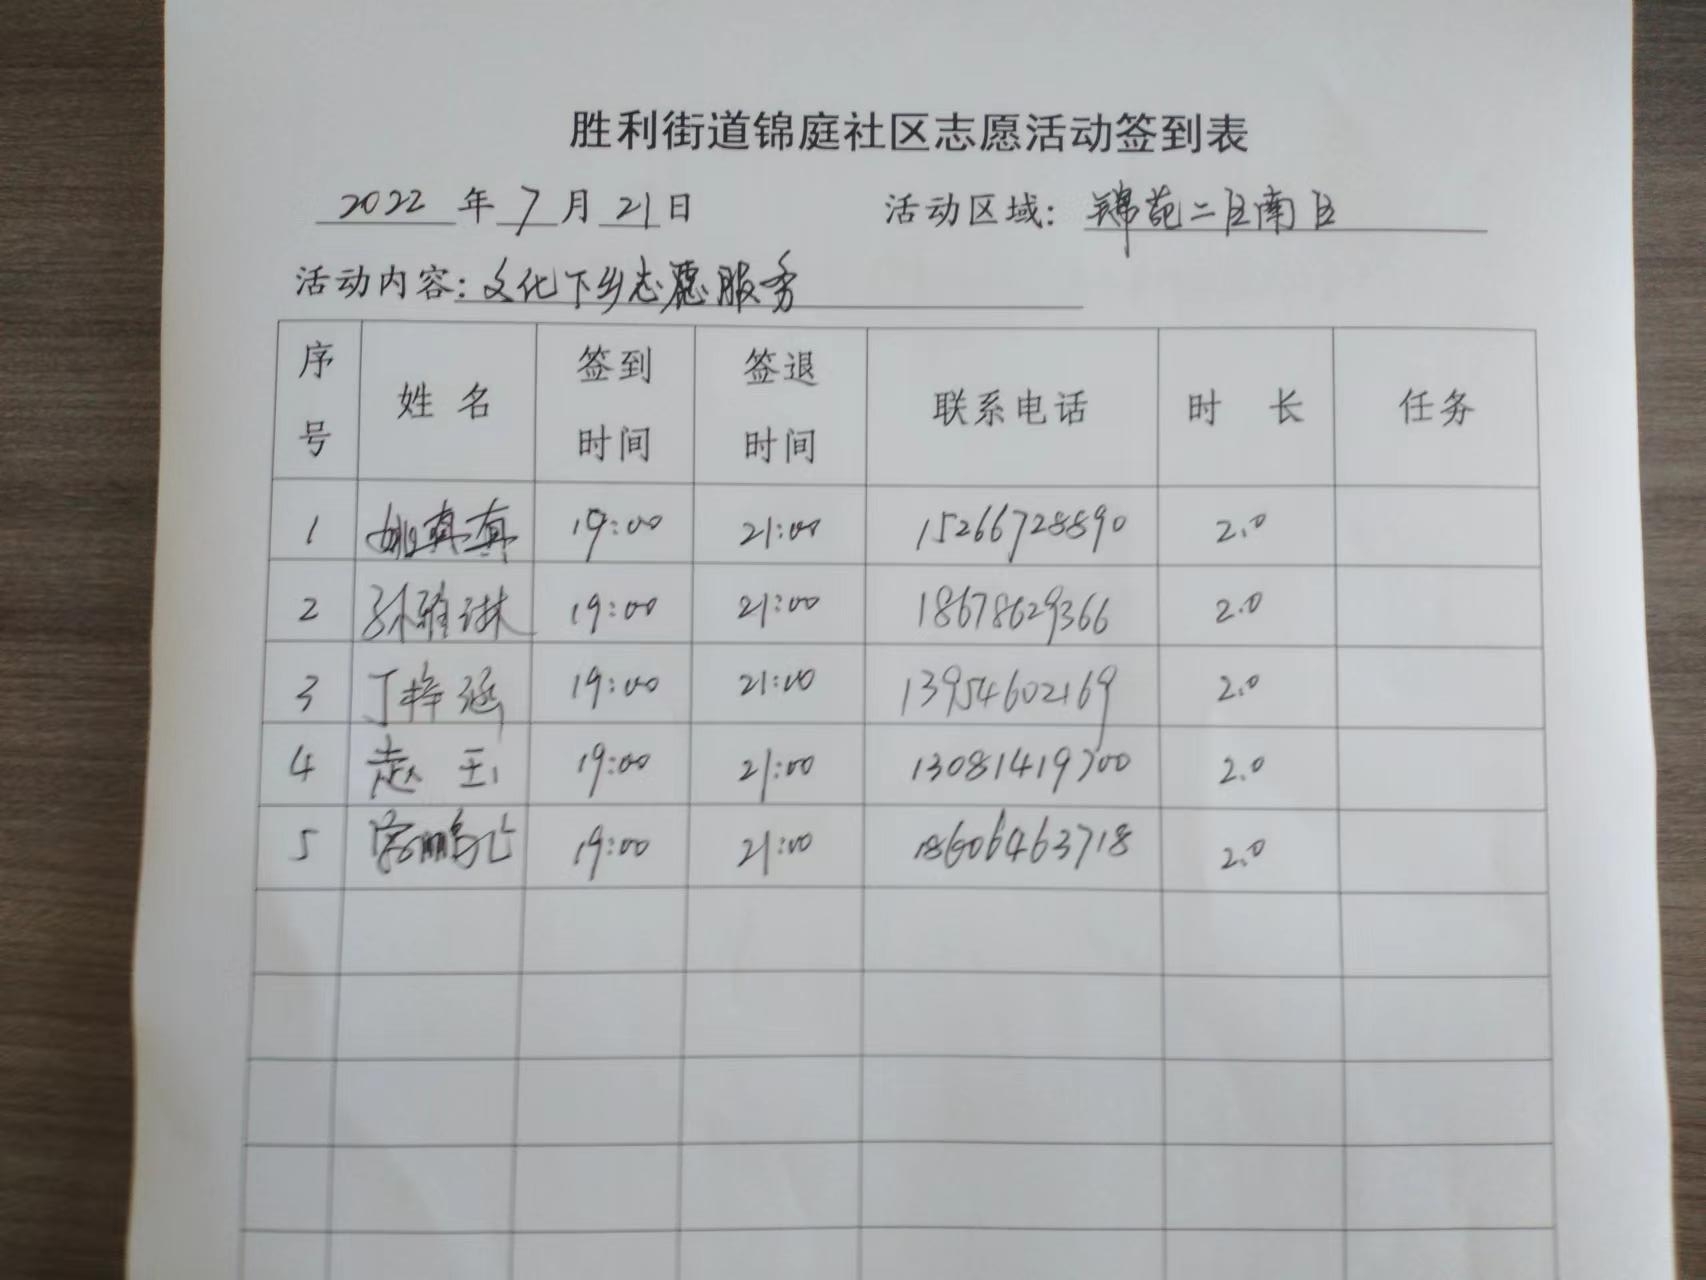 胜利街道锦庭社区志愿活动签到表
2022 年 7 月 21 日 活动区域：锦苑二区南区
活动内容：文化下乡志愿服务
序号 姓名 签到时间 签退时间 联系电话 时长 任务
1 姚真真 19:00 21:00 15266728890 2.0
2 孙雅琳 19:00 21:00 18678629366 2.0
3 丁梓涵 19:00 21:00 13954602169 2.0
4 赵玉 19:00 21:00 13081419700 2.0
5 19:00 21:00 18606463718 2.0